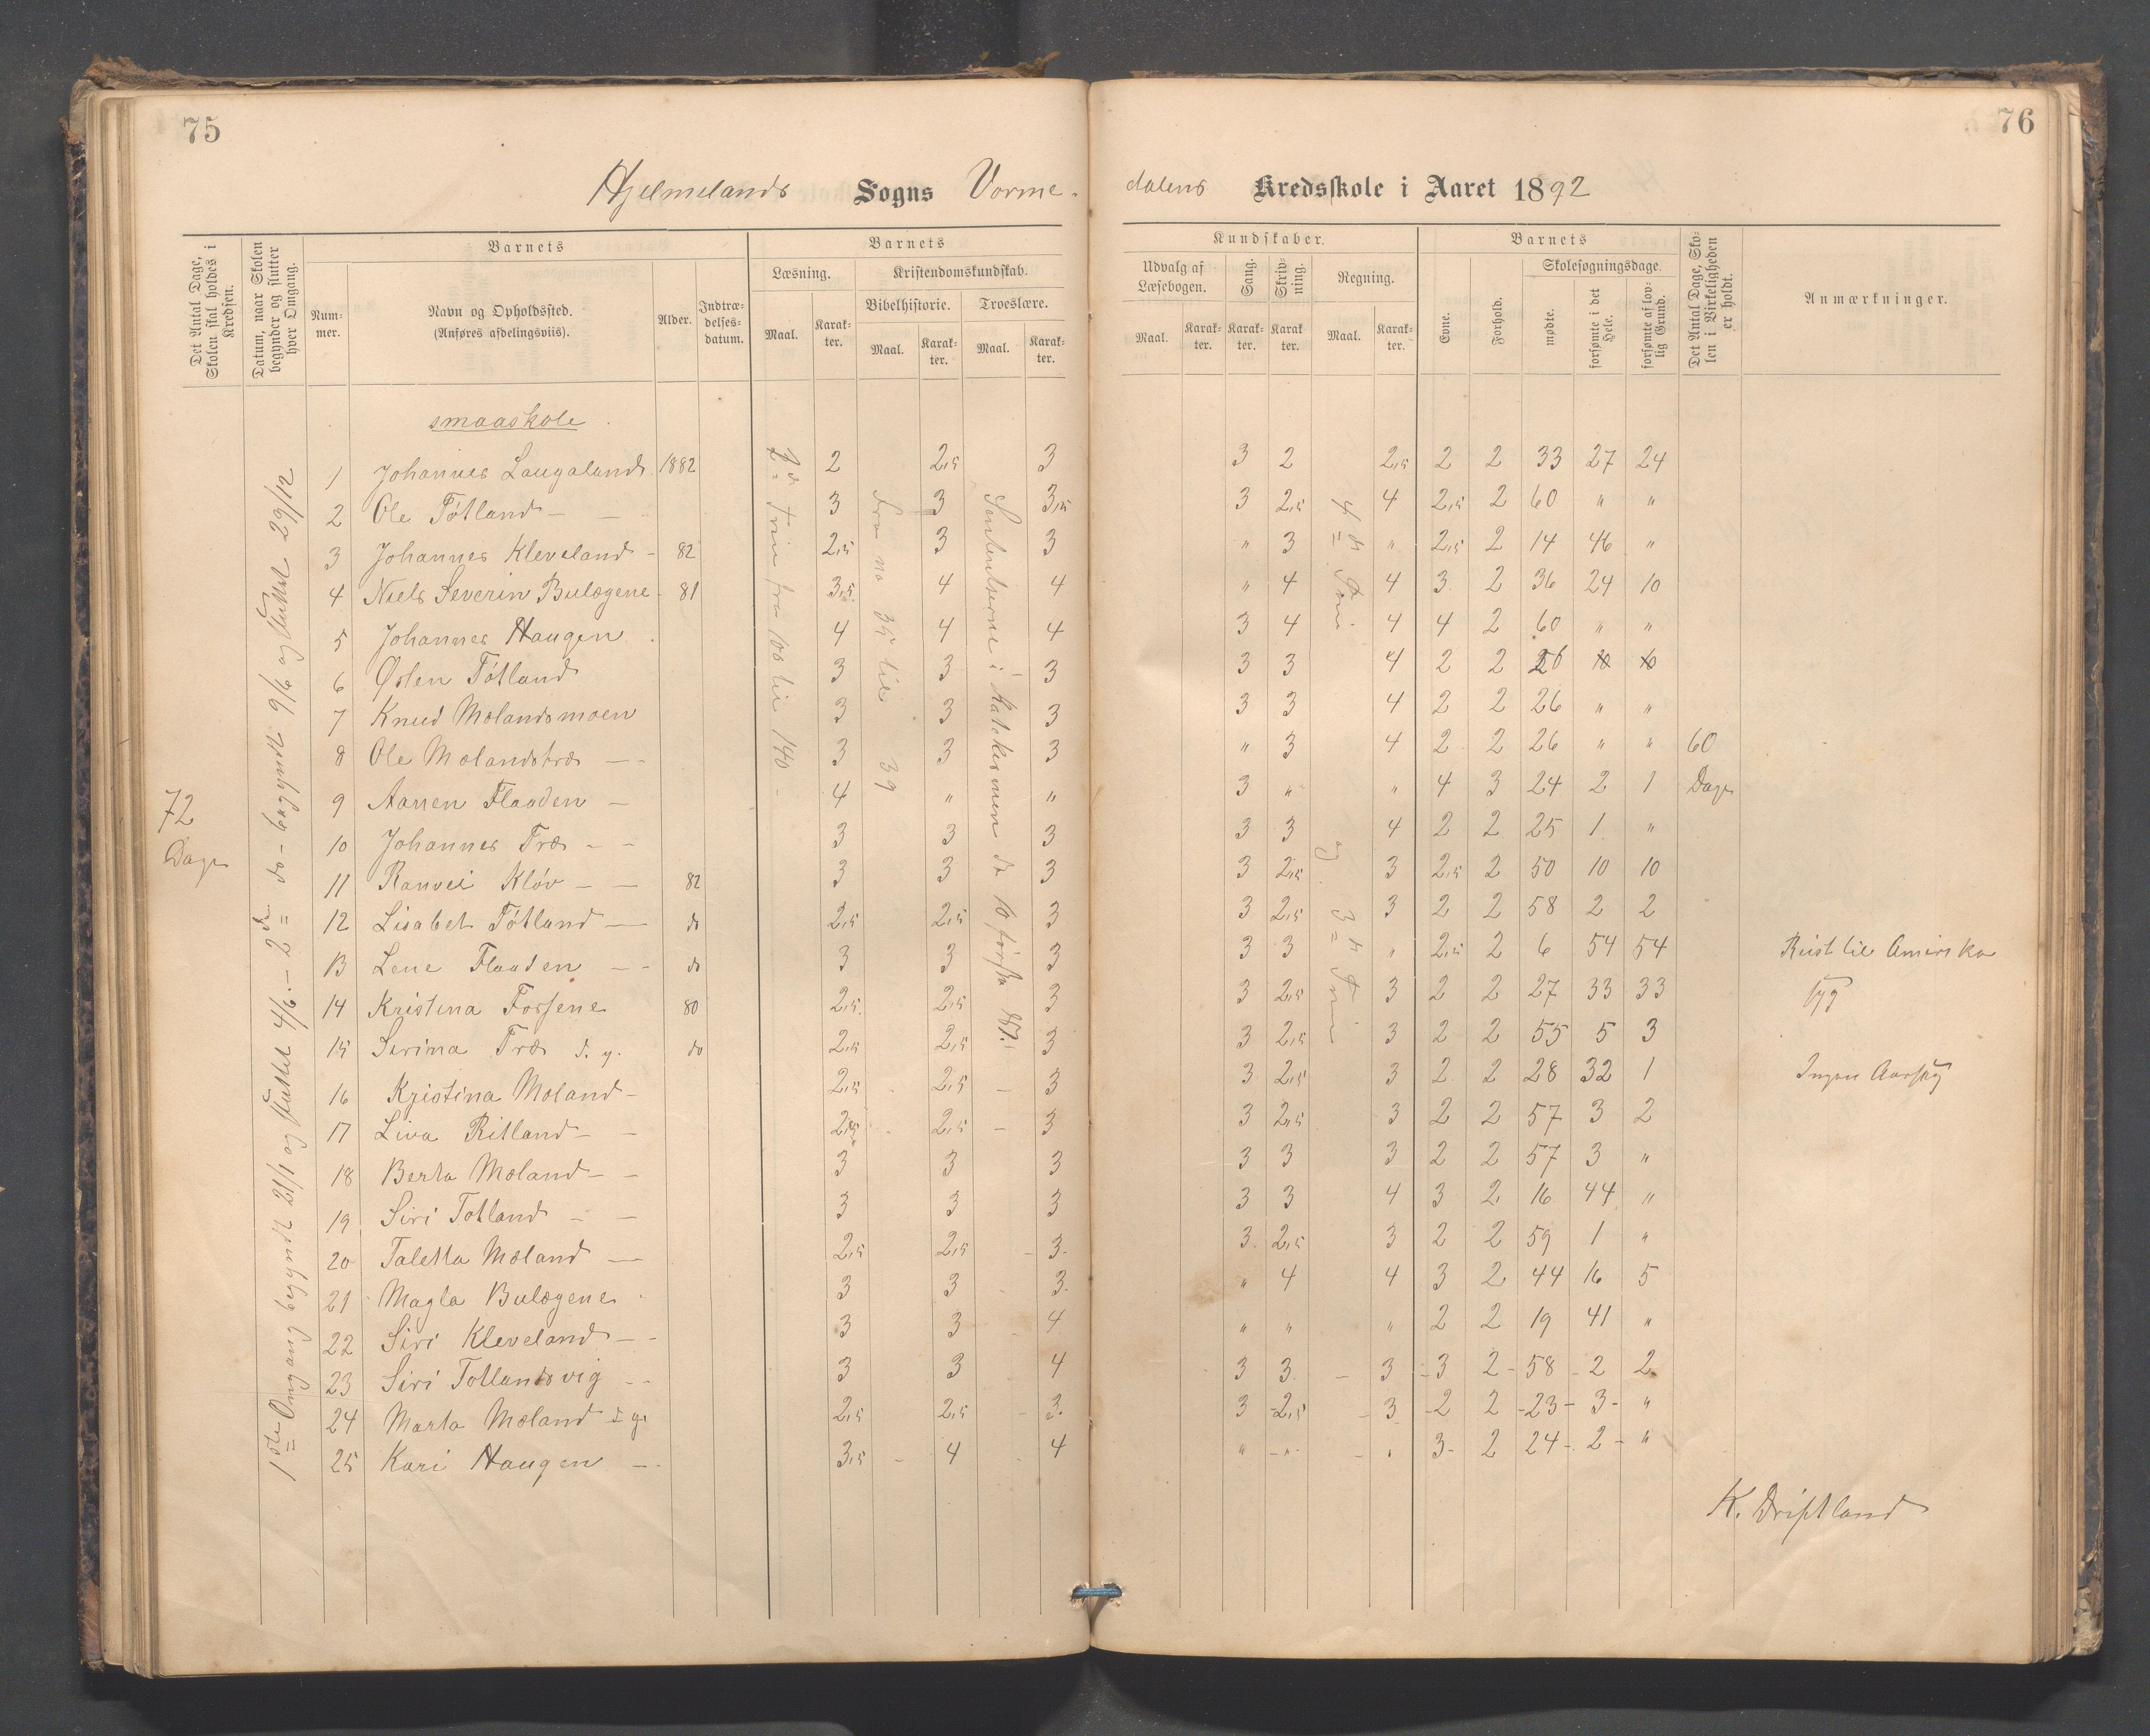 75
76
Hjelmelands Sogns Vorme-
dalens Kredsskole i Aaret 1892
Det Antal Dage, Skolen skal holdes i Kredsen.
Datum, naar Skolen begynder og slutter hver Omgang.
Barnets
Num-mer.
Navn og Opholdssted.
(Anføres afdelingsviis).
Alder.
Indtræ-delses-datum.
Barnets
Læsning.
Maal.
Karak-ter.
Kristendomskundskab.
Bibelhistorie.
Maal.
Karak-ter.
Troeslære.
Maal.
Karak-ter.
Kundskaber.
Udvalg af Læsebogen.
Maal.
Karak-ter.
Sang.
Karak-ter.
Skriv-ning.
Karak-ter.
Regning.
Maal.
Karak-ter.
Barnets
Evne.
Forhold.
Skolesøgningsdage.
mødte.
forsømte i det Hele.
forsømte af lov-lig Grund.
Det Antal Dage, Sko-len i Virkeligheden er holdt.
Anmærkninger.
72
Dage
1ste Omgang begyndt 21/1 og sluttet 4/6. - 2den do - begyndt 9/6 og sluttet 29/12
smaaskole
2d Trin fra 100 til 140
fra no 35 til 39
Sententserne i Katekismen de 10 første
4d Trin
og
3d Trin
1 Johannes Laugaland 1882 2 2,5 3 3 2 2,5 2 2 33 27 24
2 Ole Tøtland — 3 3 3,5 3 2,5 4 2,5 2 60 " "
3 Johannes Kleveland - 82 2,5 3 3 " 3 " 2,5 2 14 46 "
4 Niels Severin Bulægene - 81 3,5 4 4 " 4 4 3 2 36 24 10
5 Johannes Haugen 4 4 4 3 4 4 4 2 60 " "
6 Østen Tøtland 3 3 3 3 3 4 2 2 26
7 Knud Mælandsmoen 3 3 3 3 3 4 2 2 26 " "
8 Ole Mælandstræ — 3 3 3 " 3 4 2 2 26 " " 60
9 Aanen Flaaden — 4 " " 3 " " 4 3 24 2 1 Dage
10 Johannes Træ - - 3 3 3 3 3 4 2 2 25 1 "
11 Ranvei Kløv - - 82 3 3 3 3 2,5 3 2,5 2 50 10 10
12 Lisabet Tøtland — do 2,5 2,5 3 3 2,5 3 2 2 58 2 2
13 Lene Flaaden - - do 3 3 3 3 3 " 2,5 2 6 54 54 Reist til Amerika
14 Kristina Fossene 80 2,5 2,5 3 3 2,5 3 2 2 27 33 33 Syg
15 Serina Træ d. y. do 2,5 2,5 3 3 2,5 3 2 2 55 5 3
16 Kristina Mæland - 2,5 2,5 - 3 3 2,5 3 2 2 28 32 1 Ingen
17 Liva Ritland - - 2,5 2,5 - 3 3 2,5 3 2 2 57 3 2
18 Berta Mæland - - 3 3 3 3 3 3 2 2 57 3 "
19 Siri Tøtland - - 3 3 3 3 3 4 3 2 16 44 "
20 Taletta Mæland — 2,5 2,5 - 3 3 2,5 3 2 2 59 1 "
21 Magla Bulægene 3 3 3 " 4 4 3 2 44 16 5
22 Siri Kleveland - - 3 3 4 " " " 2 2 19 41 "
23 Siri Tøtlandsvig - - 3 3 4 3 3 - 3 - 3 2 - 58 - 2 2
24 Marta Mæland d. y. 2,5 2,5 - 3 3 - 2,5 - 3 - 2 2 - 23 - 3 - "
25 Kari Haugen — 3,5 - 4 4 " - " - " 3 - 2 24 - 2 - "
K. Driftland